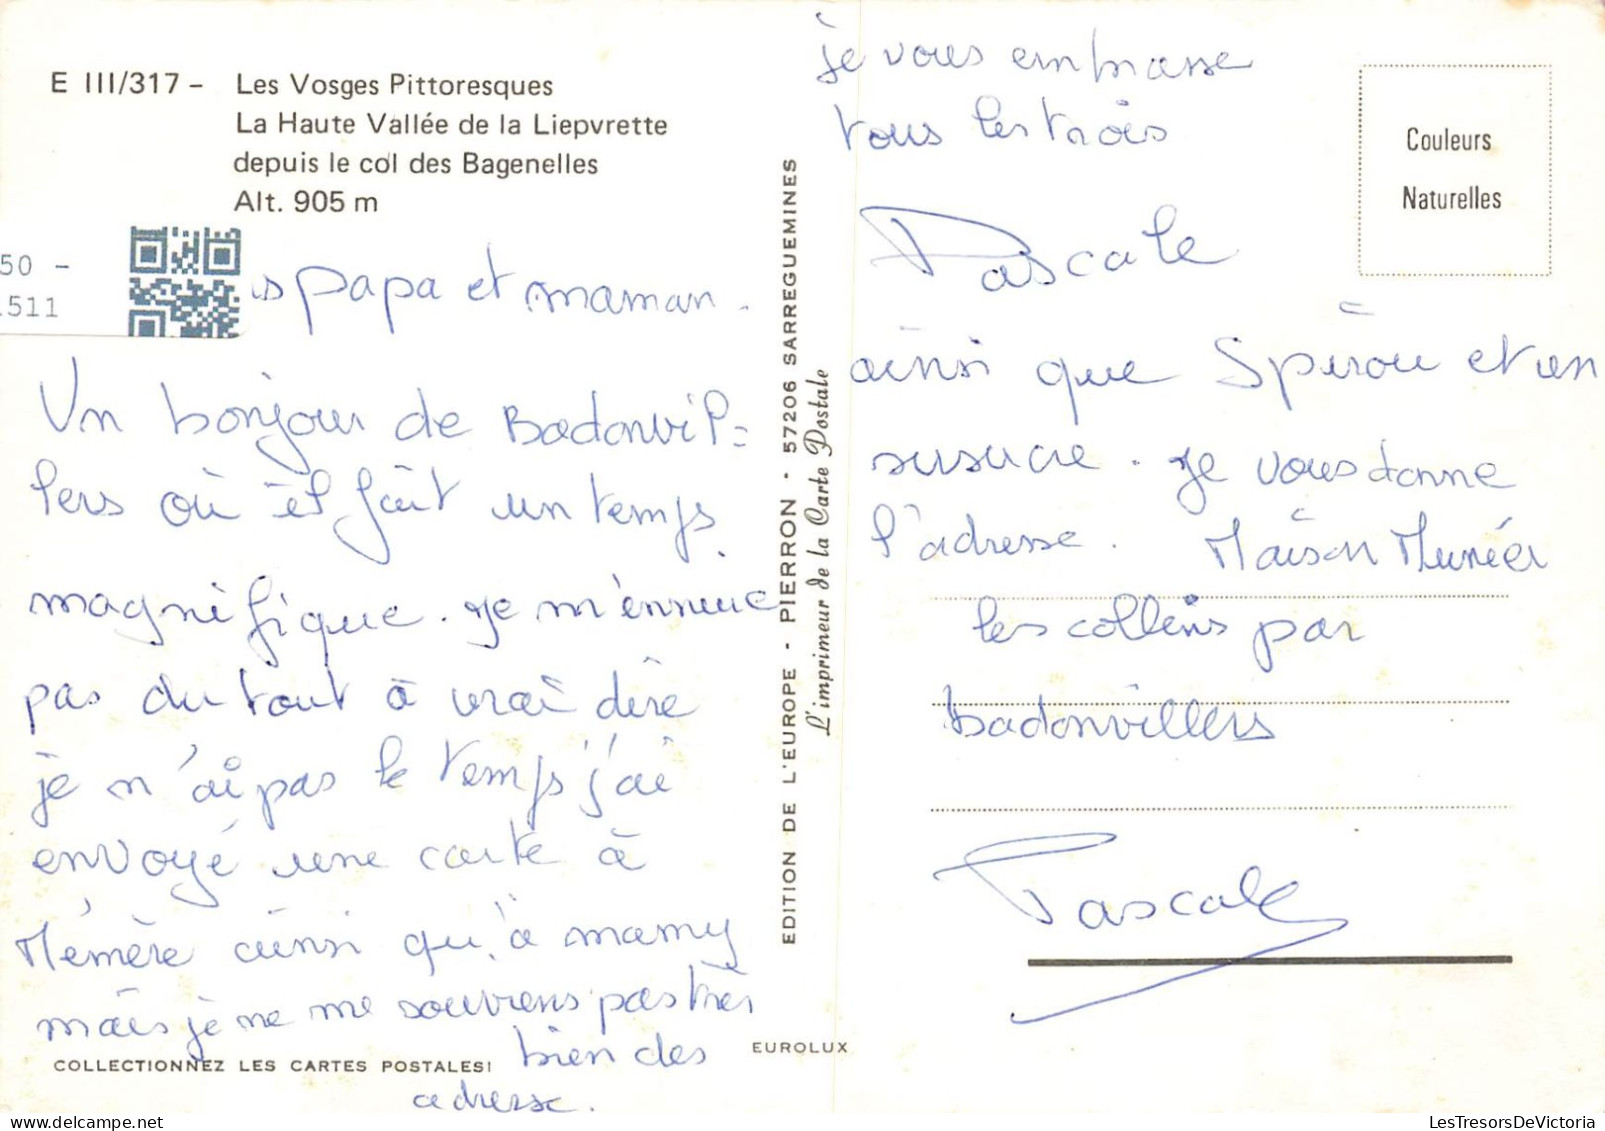 E III/317 - Les Vosges Pittoresques
La Haute Vallée de la Liepvrette
depuis le col des Bagenelles
Alt. 905 m
50 -
511
papa et maman.
Un bonjour de Badonvil=
lers où il fait un temps
magnifique. Je m'ennuie
pas du tout à vrai dire
je n'ai pas le temps j'ai
envoyé une carte à
Mémère ainsi qu'à mamy
mais je ne me souviens pas très
bien des
adresse.
COLLECTIONNEZ LES CARTES POSTALES!
EDITION DE L'EUROPE - PIERRON - 57206 SARREGUEMINES
L'imprimeur de la Carte Postale
EUROLUX
je vous embrasse
tous les trois
Pascale
ainsi que Spirou et un
susucre. Je vous donne
l'adresse. Maison Munier
les collins par
badonvillers
Pascale
Couleurs
Naturelles
LesTresorsDeVictoria.com